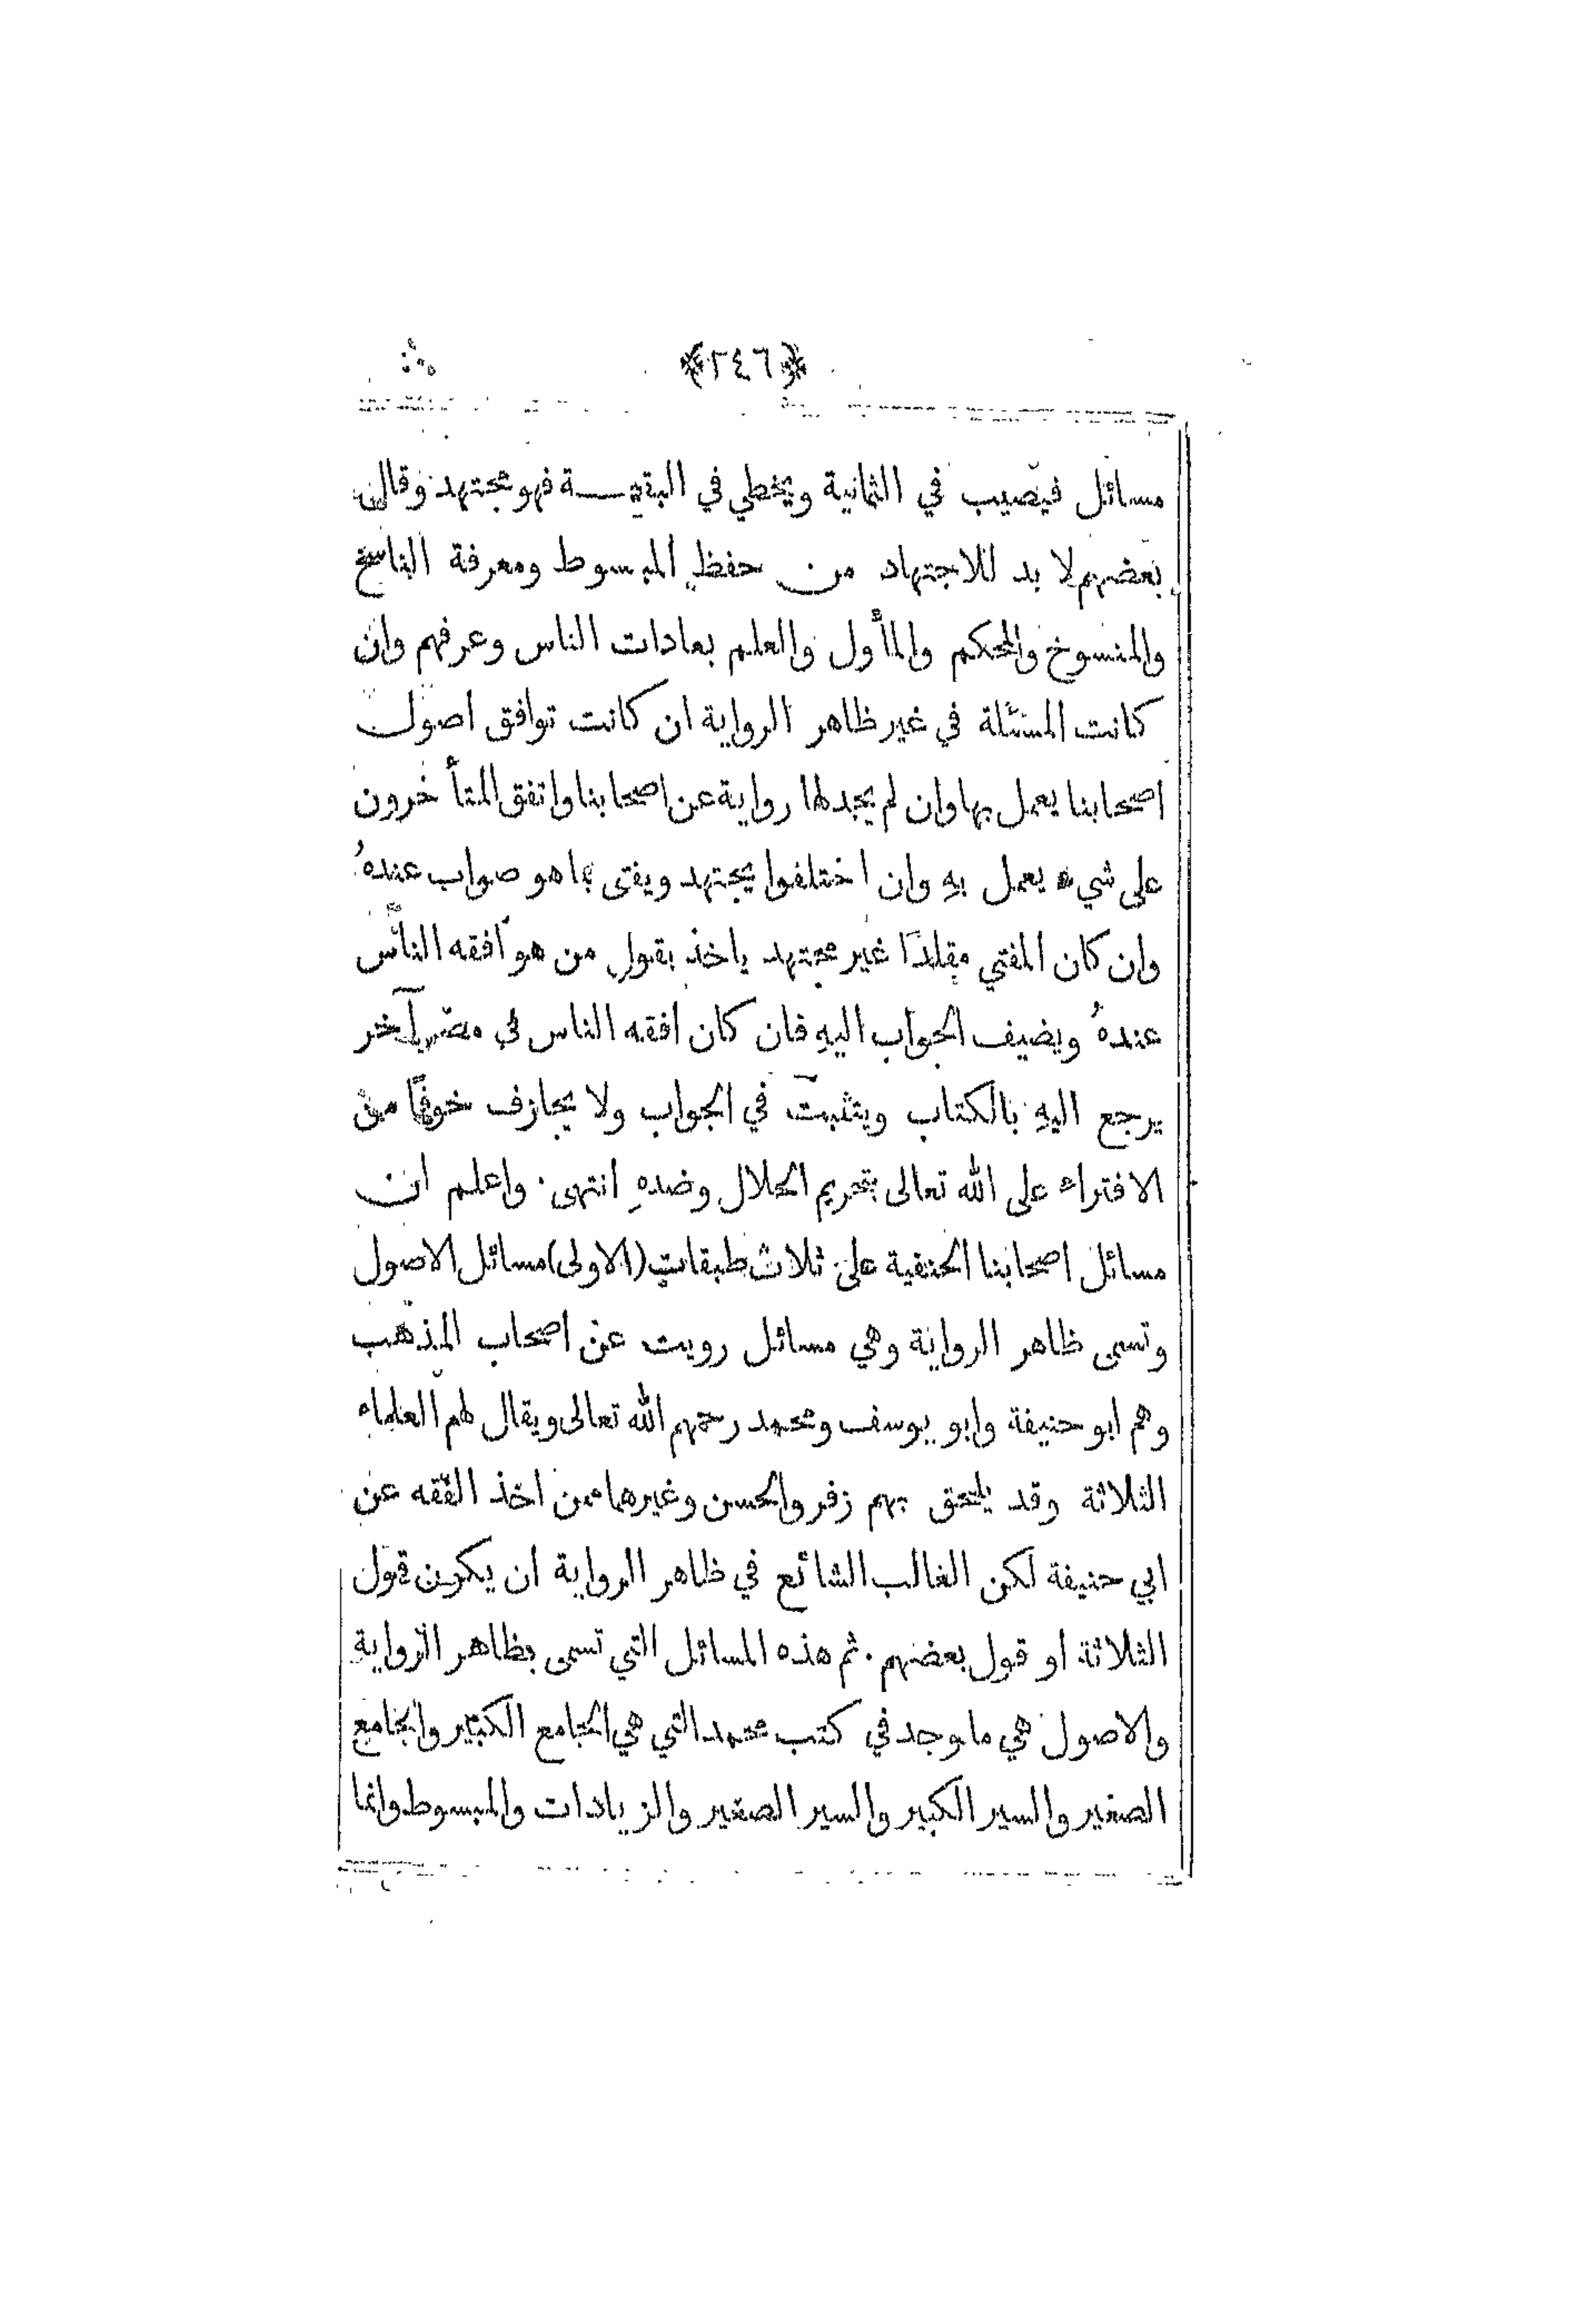 ﴿٢٤٦﴾
مسائل فيصيب في الثمانية ويخطي في البقيـــة فهو مجتهد وقال
بعضهم لا بد للاجتهاد من حفظ المبسوط ومعرفة الناسخ
والمنسوخ والمحكم والمأول والعلم بعادات الناس وعرفهم وان
كانت المسئلة في غير ظاهر الرواية ان كانت توافق اصول
اصحابنا يعمل بها وان لم يجد لها رواية عن اصحابنا واتفق المتأخرون
على شيء يعمل بهِ وان اختلفوا يجتهد ويفتى بما هو صواب عندهُ
وان كان المفتي مقلدًا غير مجتهد ياخذ بقول من هو افقه الناس
عندهُ ويضيف الجواب اليهِ فان كان افقه الناس في مصر آخر
يرجع اليهِ بالكتاب ويتثبت في الجواب ولا يجازف خوفًا من
الافتراء على الله تعالى بتحريم الحلال وضدهِ انتهى. واعلم ان
مسائل اصحابنا الحنفية على ثلاث طبقات (الاولى) مسائل الاصول
وتسمى ظاهر الرواية وهي مسائل رويت عن اصحاب المذهب
وهم ابو حنيفة وابو يوسف ومحمد رحمهم الله تعالى ويقال لهم العلماء
الثلاثة وقد يلحق بهم زفر والحسن وغيرهما ممن اخذ الفقه عن
ابي حنيفة لكن الغالب الشائع في ظاهر الرواية ان يكون قول
الثلاثة او قول بعضهم. ثم هذه المسائل التي تسمى بظاهر الرواية
والاصول هي ما وجد في كتب محمد التي هي الجامع الكبير والجامع
الصغير والسير الكبير والسير الصغير والزيادات والمبسوط وانما